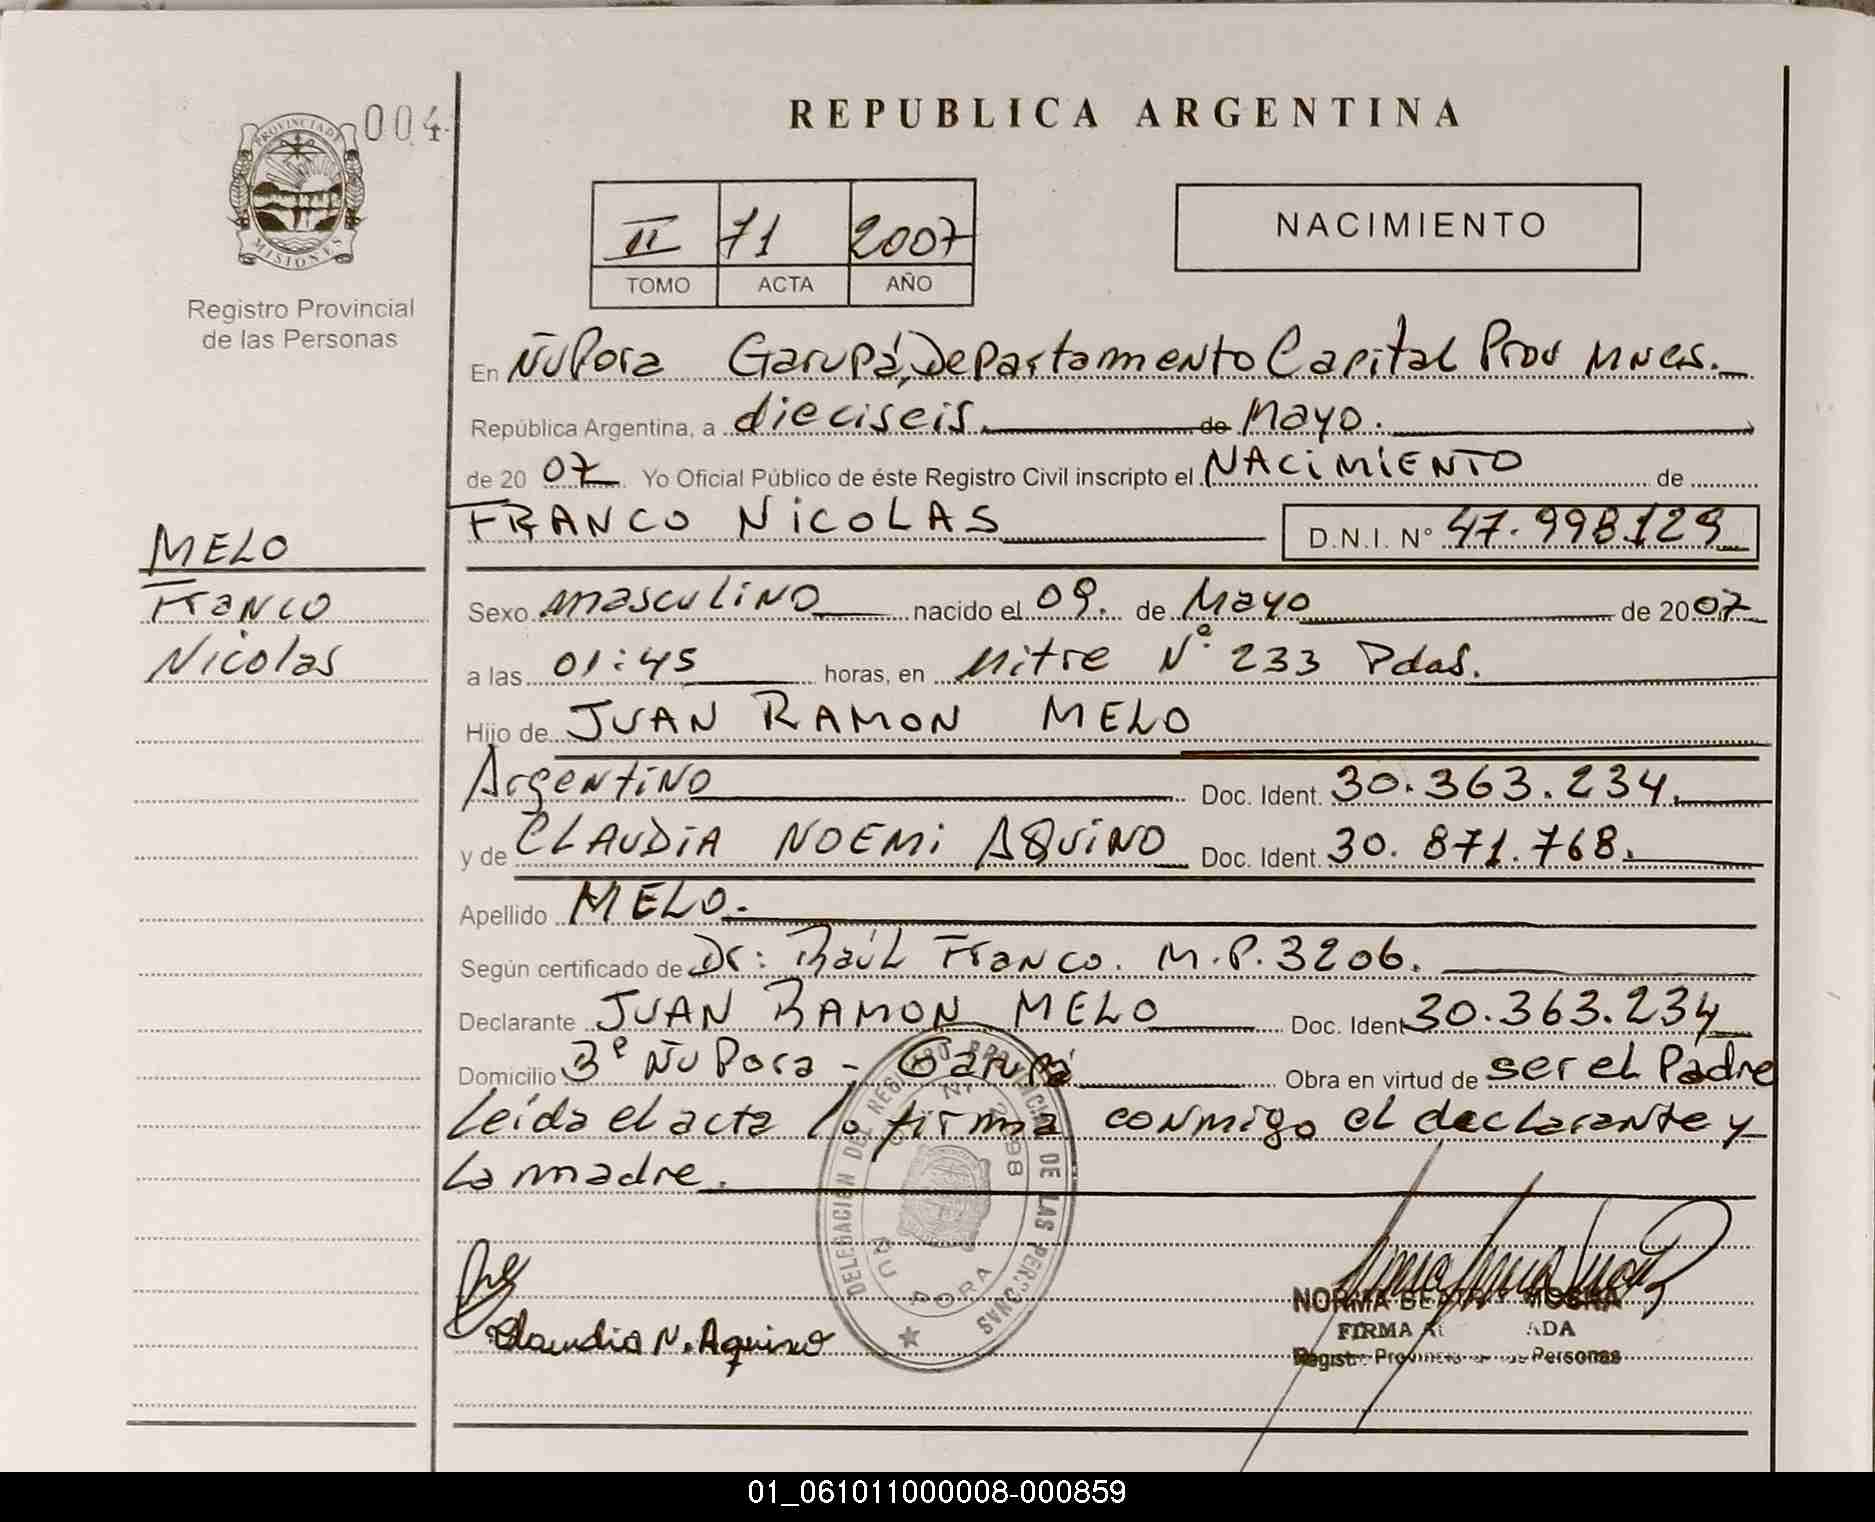 004
PROVINCIA DE
MISIONES
Registro Provincial
de las Personas
REPUBLICA ARGENTINA
II 71 2007
TOMO ACTA AÑO
NACIMIENTO
En Ñu Pora Garupá, Departamento Capital Prov Mnes.
República Argentina, a dieciseis. de Mayo.
de 20 07 Yo Oficial Público de éste Registro Civil inscripto el NACIMIENTO de
FRANCO NICOLAS D.N.I. N° 47.998.129
MELO
Franco
Nicolas
Sexo masculino nacido el 09. de Mayo de 2007
a las 01:45 horas, en Mitre N° 233 Pdas.
Hijo de JUAN RAMON MELO
Argentino Doc. Ident. 30.363.234.
y de CLAUDIA NOEMI AQUINO Doc. Ident. 30.871.768.
Apellido MELO.
Según certificado de Dr: Raúl Franco. M.P. 3206.
Declarante JUAN RAMON MELO Doc. Ident 30.363.234
Domicilio Bº Ñu Pora - Garupá Obra en virtud de ser el Padre
Leída el acta la firma conmigo el declarante y
la madre.
DELEGACIÓN DEL REGISTRO PROVINCIAL DE LAS PERSONAS
ÑU PORA
Claudia N. Aquino
NORMA
FIRMA
Personas
01_061011000008-000859